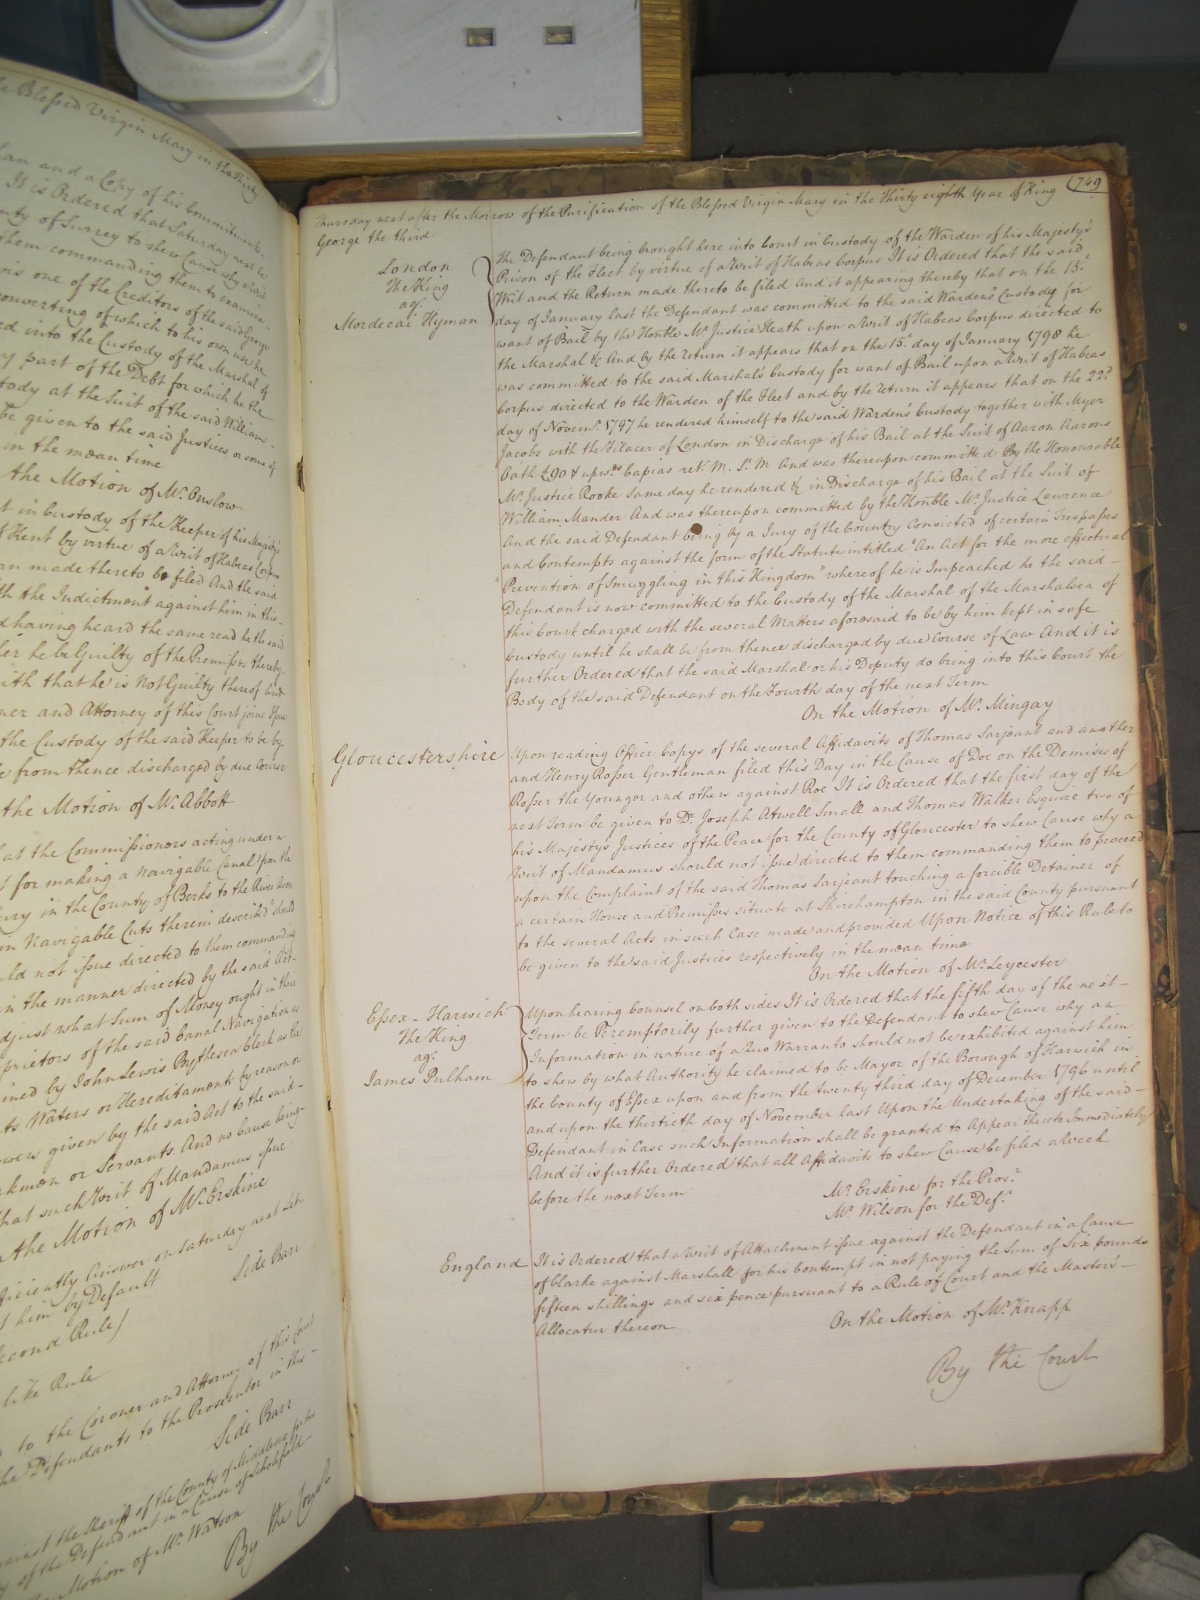 le Blessed Virgin Mary in the Thirty
lan and a Copy of his Commitment
It is Ordered that Saturday next be
nty of Surrey to shew Cause why a Writ
them commanding them to examine
vis one of the Creditors of the said George
converting of which to his own use he
ed into the Custody of the Marshal of
ny part of the Debt for which he the
tody at the Suit of the said William
be given to the said Justices or some of
in the mean time
the Motion of Mr. Onslow
t in Custody of the Keeper of his Majestys
f Kent by virtue of a Writ of Habeas Corpus
rn made thereto be filed And the said
th the Indictment against him in this
d having heard the same read he the said
er he be Guilty of the Premisses thereby
ith that he is Not Guilty thereof And
ner and Attorney of this Court joins
the Custody of the said Keeper to be by
e from thence discharged by due Course
the Motion of Mr. Abbott
at the Commissioners acting under a
t for making a Navigable Canal from the
ury in the County of Berks to the River Avon
in Navigable Cuts therein described" should
uld not issue directed to them commanding
in the manner directed by the said Act
djust what Sum of Money ought in their
prietors of the said Canal Navigation
ined by John Lewis Clerk as
ts Waters or Hereditaments by reason or
wers given by the said Act to the said
rkmen or Servants And no Cause being
hat such Writ of Mandamus issue
n the Motion of Mr. Erskine
ficiently Answer on Saturday next
t him by Default
Side Barr
econd Rule)
like Rule
to the Coroner and Attorney of this Court
he Defendants to the Prosecutor in this
Side Barr
gainst the Sheriff of the County of Middlesex for his
y of the Defendant in a Cause of
the Motion of Mr. Watson
By the Court
749
Thursday next after the Morrow of the Purification of the Blessed Virgin Mary in the Thirty eighth Year of King
George the third
London
The King
agt.
Mordecai Hyman
The Defendant being brought here into Court in Custody of the Warden of his Majesty's
Prison of the Fleet by virtue of a Writ of Habeas Corpus It is Ordered that the said
Writ and the Return made thereto be filed And it appearing thereby that on the 15.
day of January last the Defendant was committed to the said Warden's Custody for
want of Bail by the Honble Mr. Justice Heath upon a Writ of Habeas Corpus directed to
the Marshal &c And by the Return it appears that on the 15. day of January 1798 he
was committed to the said Marshal's Custody for want of Bail upon a Writ of Habeas
Corpus directed to the Warden of the Fleet and by the Return it appears that on the 22d
day of Novemr. 1797 he rendered himself to the said Warden's Custody together with Myer
Jacobs with the Filacer of London in Discharge of his Bail at the Suit of Aaron Aarons
Oath £90 & upwds. Capias ret. M. St. M. And was thereupon committed By the Honourable
Mr. Justice Rooke same day he rendered &c in Discharge of his Bail at the Suit of
William Mander And was thereupon committed by the Honble Mr. Justice Lawrence
And the said Defendant being by a Jury of the Country Convicted of certain Trespasses
and Contempts against the form of the Statute intitled "An Act for the more effectual
"Prevention of Smuggling in this Kingdom" whereof he is Impeached he the said
Defendant is now committed to the Custody of the Marshal of the Marshalsea of
this Court charged with the several Matters aforesaid to be by him kept in safe
Custody until he shall be from thence discharged by due Course of Law And it is
further Ordered that the said Marshal or his Deputy do bring into this Court the
Body of the said Defendant on the Fourth day of the next Term
On the Motion of Mr. Mingay
Gloucestershire
Upon reading Office Copys of the several Affidavits of Thomas Sarjeant and another
and Henry Rosser Gentleman filed this Day in the Cause of Doe on the Demises of
Rosser the Younger and others against Roe It is Ordered that the first day of the
next Term be given to Dr. Joseph Atwell Small and Thomas Walker Esquire two of
his Majestys Justices of the Peace for the County of Gloucester to shew Cause why a
Writ of Mandamus should not issue directed to them commanding them to proceed
upon the Complaint of the said Thomas Sarjeant touching a forcible Detainer of
a certain House and Premisses situate at Shirehampton in the said County pursuant
to the several Acts in such Case made and provided Upon Notice of this Rule to
be given to the said Justices respectively in the mean time
On the Motion of Mr. Leycester
Essex - Harwich
The King
agt.
James Pulham
Upon hearing Counsel on both sides It is Ordered that the fifth day of the next
Term be Peremptorily further given to the Defendant to shew Cause why an
Information in nature of a Quo Warranto should not be exhibited against him
to shew by what Authority he claimed to be Mayor of the Borough of Harwich in
the County of Essex upon and from the twenty third day of December 1796 until
and upon the thirtieth day of November last Upon the Undertaking of the said
Defendant in Case such Information shall be granted to Appear thereto Immediately
And it is further Ordered that all Affidavits to shew Cause be filed a Week
before the next Term
Mr. Erskine for the Pros.r
Mr. Wilson for the Def.t
England
It is Ordered that a Writ of Attachment issue against the Defendant in a Cause
of Clarke against Marshall for his Contempt in not paying the Sum of Six pounds
fifteen shillings and six pence pursuant to a Rule of Court and the Master's
Allocatur thereon
On the Motion of Mr. Knapp
By the Court